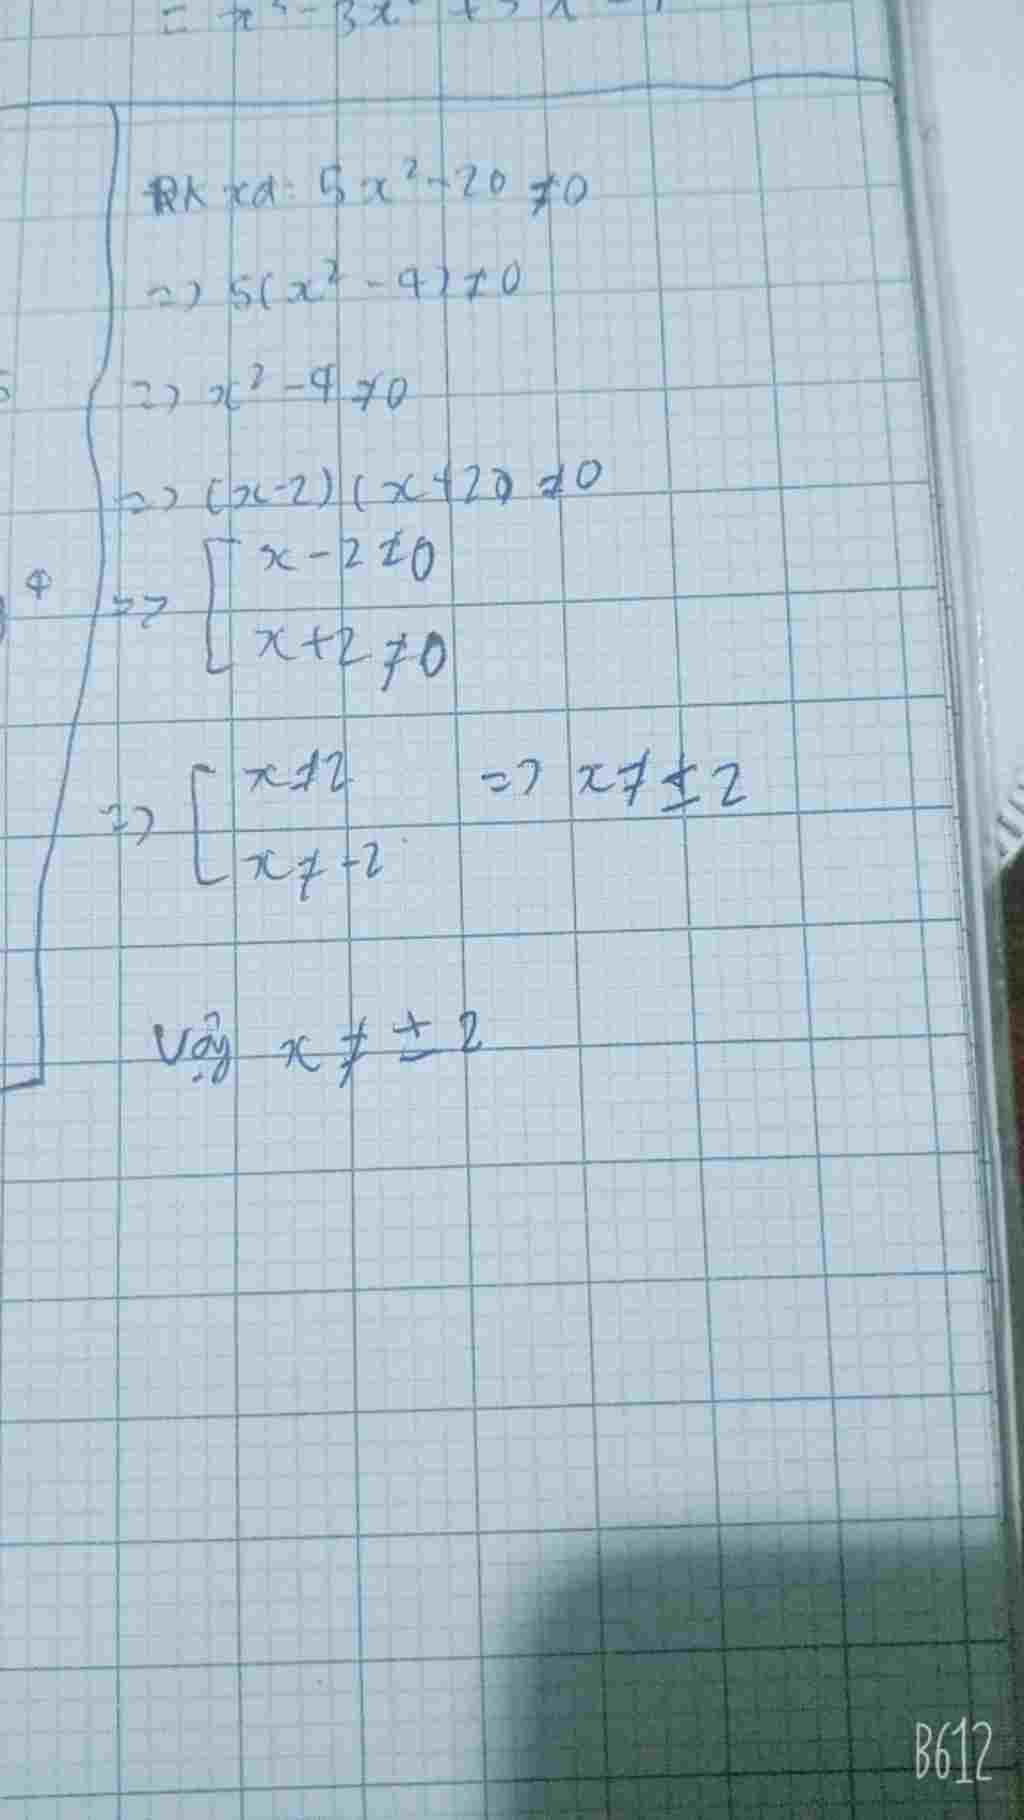 = x³ - 3x² + 3x - 1
ĐK xđ: 5x² - 20 ≠ 0
=> 5(x² - 4) ≠ 0
=> x² - 4 ≠ 0
=> (x-2)(x+2) ≠ 0
=> [ x - 2 ≠ 0
x + 2 ≠ 0
=> [ x ≠ 2 => x ≠ ± 2
x ≠ -2
Vậy x ≠ ± 2
B612